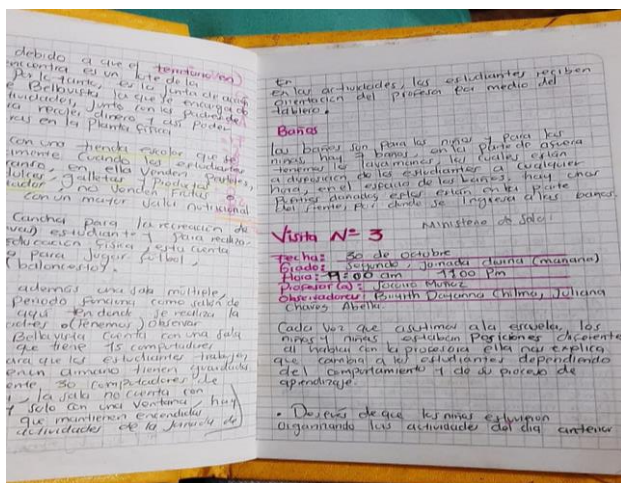 debido a que el territorio en
encuentra es un lote de la
Por lo tanto, es la junta de acción
Bellavista, la que se encarga de
tividades, junto con los padres de
ra recoler dinero y asi poder
ras en la planta física
con una tienda escolar que se
amente cuando los estudiantes
canso, en ella venden pasteles,
dulces, galletas, productos
y no venden frutas o
con un mayor valor nutricional
Cancha para la recreación de
estudiante y para realizar
educación física, esta cuenta
para jugar fútbol,
(baloncesto).
además una sala múltiple,
periodo funciona como salón de
aquí en donde se realiza la
(Tenemos) observar
Bellavista cuenta con una sala
que tiene computadores
ara que los estudiantes trabajen,
armario tienen guardados
ente 30 computadores de
la sala no cuenta con
y solo con una ventana, hay
que mantienen encendidos
actividades de la jornada de
En
en las actividades, los estudiantes reciben
orientación del profesor por medio del
tablero.
Baños
los baños son para los niños y para las
niñas, hay 7 baños, en la parte de afuera
tenemos los lavamanos, los cuales están
a disposición de los estudiantes a cualquier
hora, en el espacio de los baños, hay unos
dañados estos están en la parte
del frente, por donde se ingresa a los baños.
Ministerio de salud.
Visita Nº 3
Fecha: 30 de octubre
Grado: Segundo, jornada diurna (mañana)
Hora: 7:00 am 1:00 pm
Profesor(a): Socorro Muñoz
Observadoras: Dayanna Chilma, Juliana
Chaves Abella.
Cada vez que asistimos a la escuela, los
niños y niñas estaban posiciones diferente
al hablar con la profesora ella nos explica
que cambia a los estudiantes dependiendo
del comportamiento y de su proceso de
aprendizaje.
• Después de que los niños estuvieron
organizando las actividades del día anterior